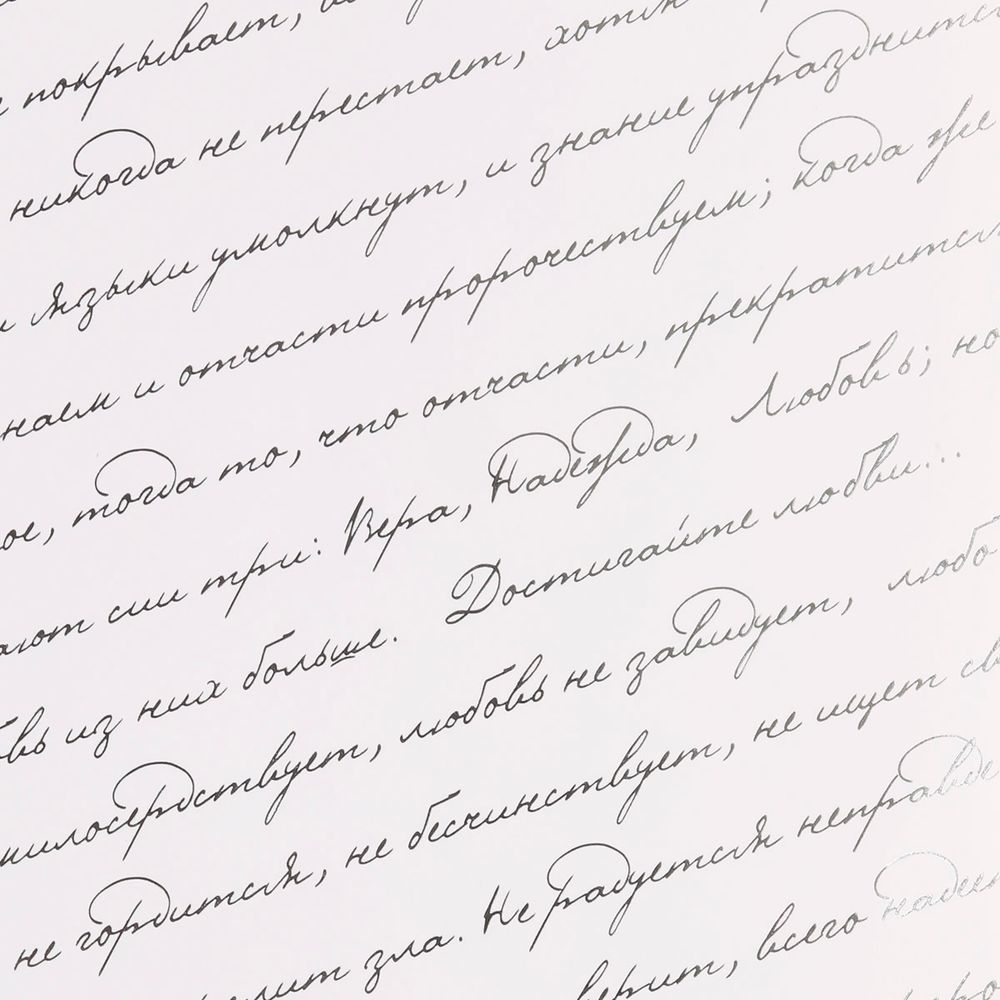 покрывает,
никогда не перестает, хотя
и языки умолкнут, и знание упразднится
наем и отчасти пророчествуем; когда же
ое, тогда то, что отчасти, прекратится
ают сии три: Вера, Надежда, Любовь; но
бовь из них больше. Достигайте любви...
милосердствует, любовь не завидует, любо
не гордится, не бесчинствует, не ищет св
слит зла. Не радуется неправде
верит, всего надеет